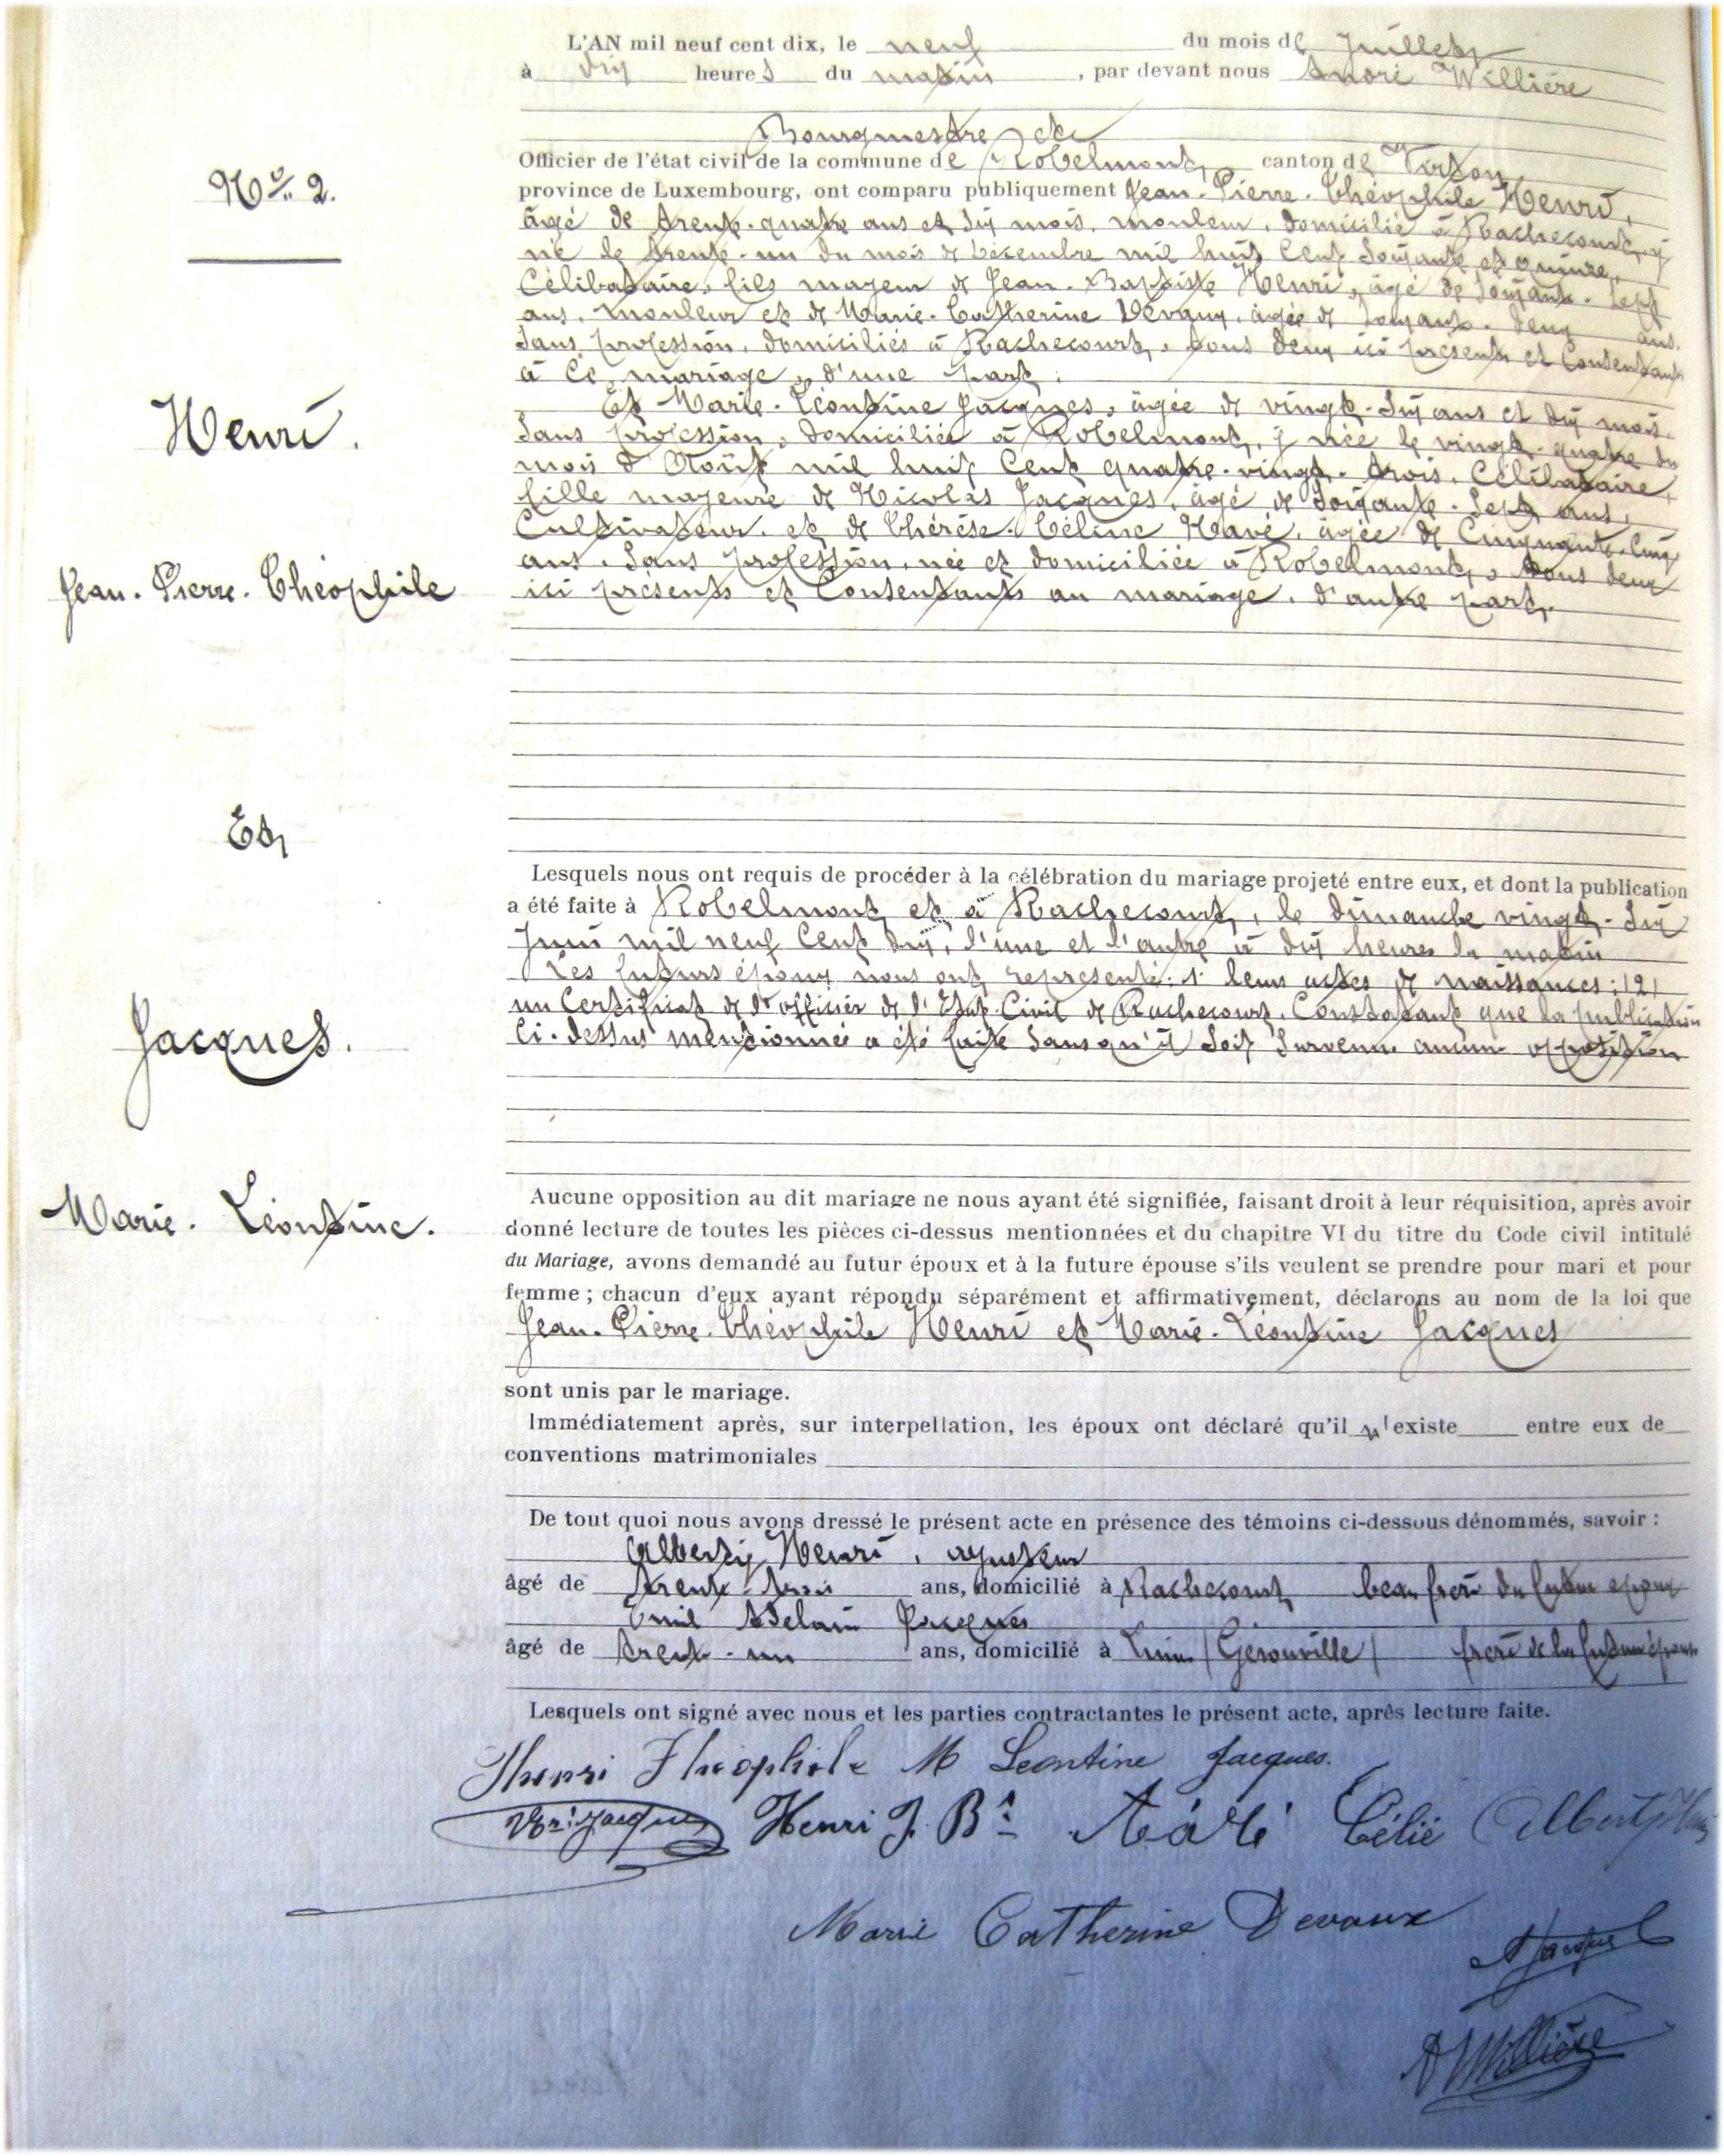 L'AN mil neuf cent dix, le neuf du mois de Juillet
à dix heures du matin, par devant nous André Willière
Bourgmestre et
Officier de l'état civil de la commune de Robelmont, canton de Virton
province de Luxembourg, ont comparu publiquement Jean-Pierre-Théophile Henri,
âgé de trente-quatre ans et six mois, mouleur, domicilié à Rachecourt, y
né le trente-un du mois de Décembre mil huit cent soixante et quinze,
Célibataire, fils majeur de Jean-Baptiste Henri, âgé de soixante-sept
ans, mouleur et de Marie-Catherine Devaux, âgée de soixante-deux ans,
sans profession, domiciliés à Rachecourt, tous deux ici présents et consentants
à ce mariage, d'une part.
Et Marie-Léontine Jacques, âgée de vingt-six ans et dix mois,
sans profession, domiciliée à Robelmont, y née le vingt-quatre du
mois d'Août mil huit cent quatre-vingt-trois, Célibataire,
fille majeure de Nicolas Jacques, âgé de soixante-sept ans,
Cultivateur, et de Thérèse-Céline Havé, âgée de Cinquante-Cinq
ans, sans profession, née et domiciliée à Robelmont, tous deux
ici présents et Consentants au mariage, d'autre part.
N° 2.
Henri.
Jean-Pierre-Théophile
Et
Jacques.
Marie-Léontine.
Lesquels nous ont requis de procéder à la célébration du mariage projeté entre eux, et dont la publication
a été faite à Robelmont et à Rachecourt, le dimanche vingt-six
Juin mil neuf cent dix, l'une et l'autre à dix heures du matin
Les futurs époux nous ont représenté: 1° leurs actes de naissances; (2)
un Certificat de l'officier de l'Etat-Civil de Rachecourt, Constatant que la publication
ci-dessus mentionnée a été faite sans qu'il soit survenu aucune opposition
Aucune opposition au dit mariage ne nous ayant été signifiée, faisant droit à leur réquisition, après avoir
donné lecture de toutes les pièces ci-dessus mentionnées et du chapitre VI du titre du Code civil intitulé
du Mariage, avons demandé au futur époux et à la future épouse s'ils veulent se prendre pour mari et pour
femme ; chacun d'eux ayant répondu séparément et affirmativement, déclarons au nom de la loi que
Jean-Pierre-Théophile Henri et Marie-Léontine Jacques
sont unis par le mariage.
Immédiatement après, sur interpellation, les époux ont déclaré qu'il n'existe entre eux de
conventions matrimoniales
De tout quoi nous avons dressé le présent acte en présence des témoins ci-dessous dénommés, savoir :
Alberty Henri, ajusteur
âgé de trente-trois ans, domicilié à Rachecourt beau frère du futur époux
Emil Adelain Jacques
âgé de trente-un ans, domicilié à Limes (Gérouville) frère de la future épouse
Lesquels ont signé avec nous et les parties contractantes le présent acte, après lecture faite.
Henri Théophile M Leontine Jacques.
Jacques Henri J. Bte Célié Alberty Henri
Marie Catherine Devaux
A Jacques
A Willière